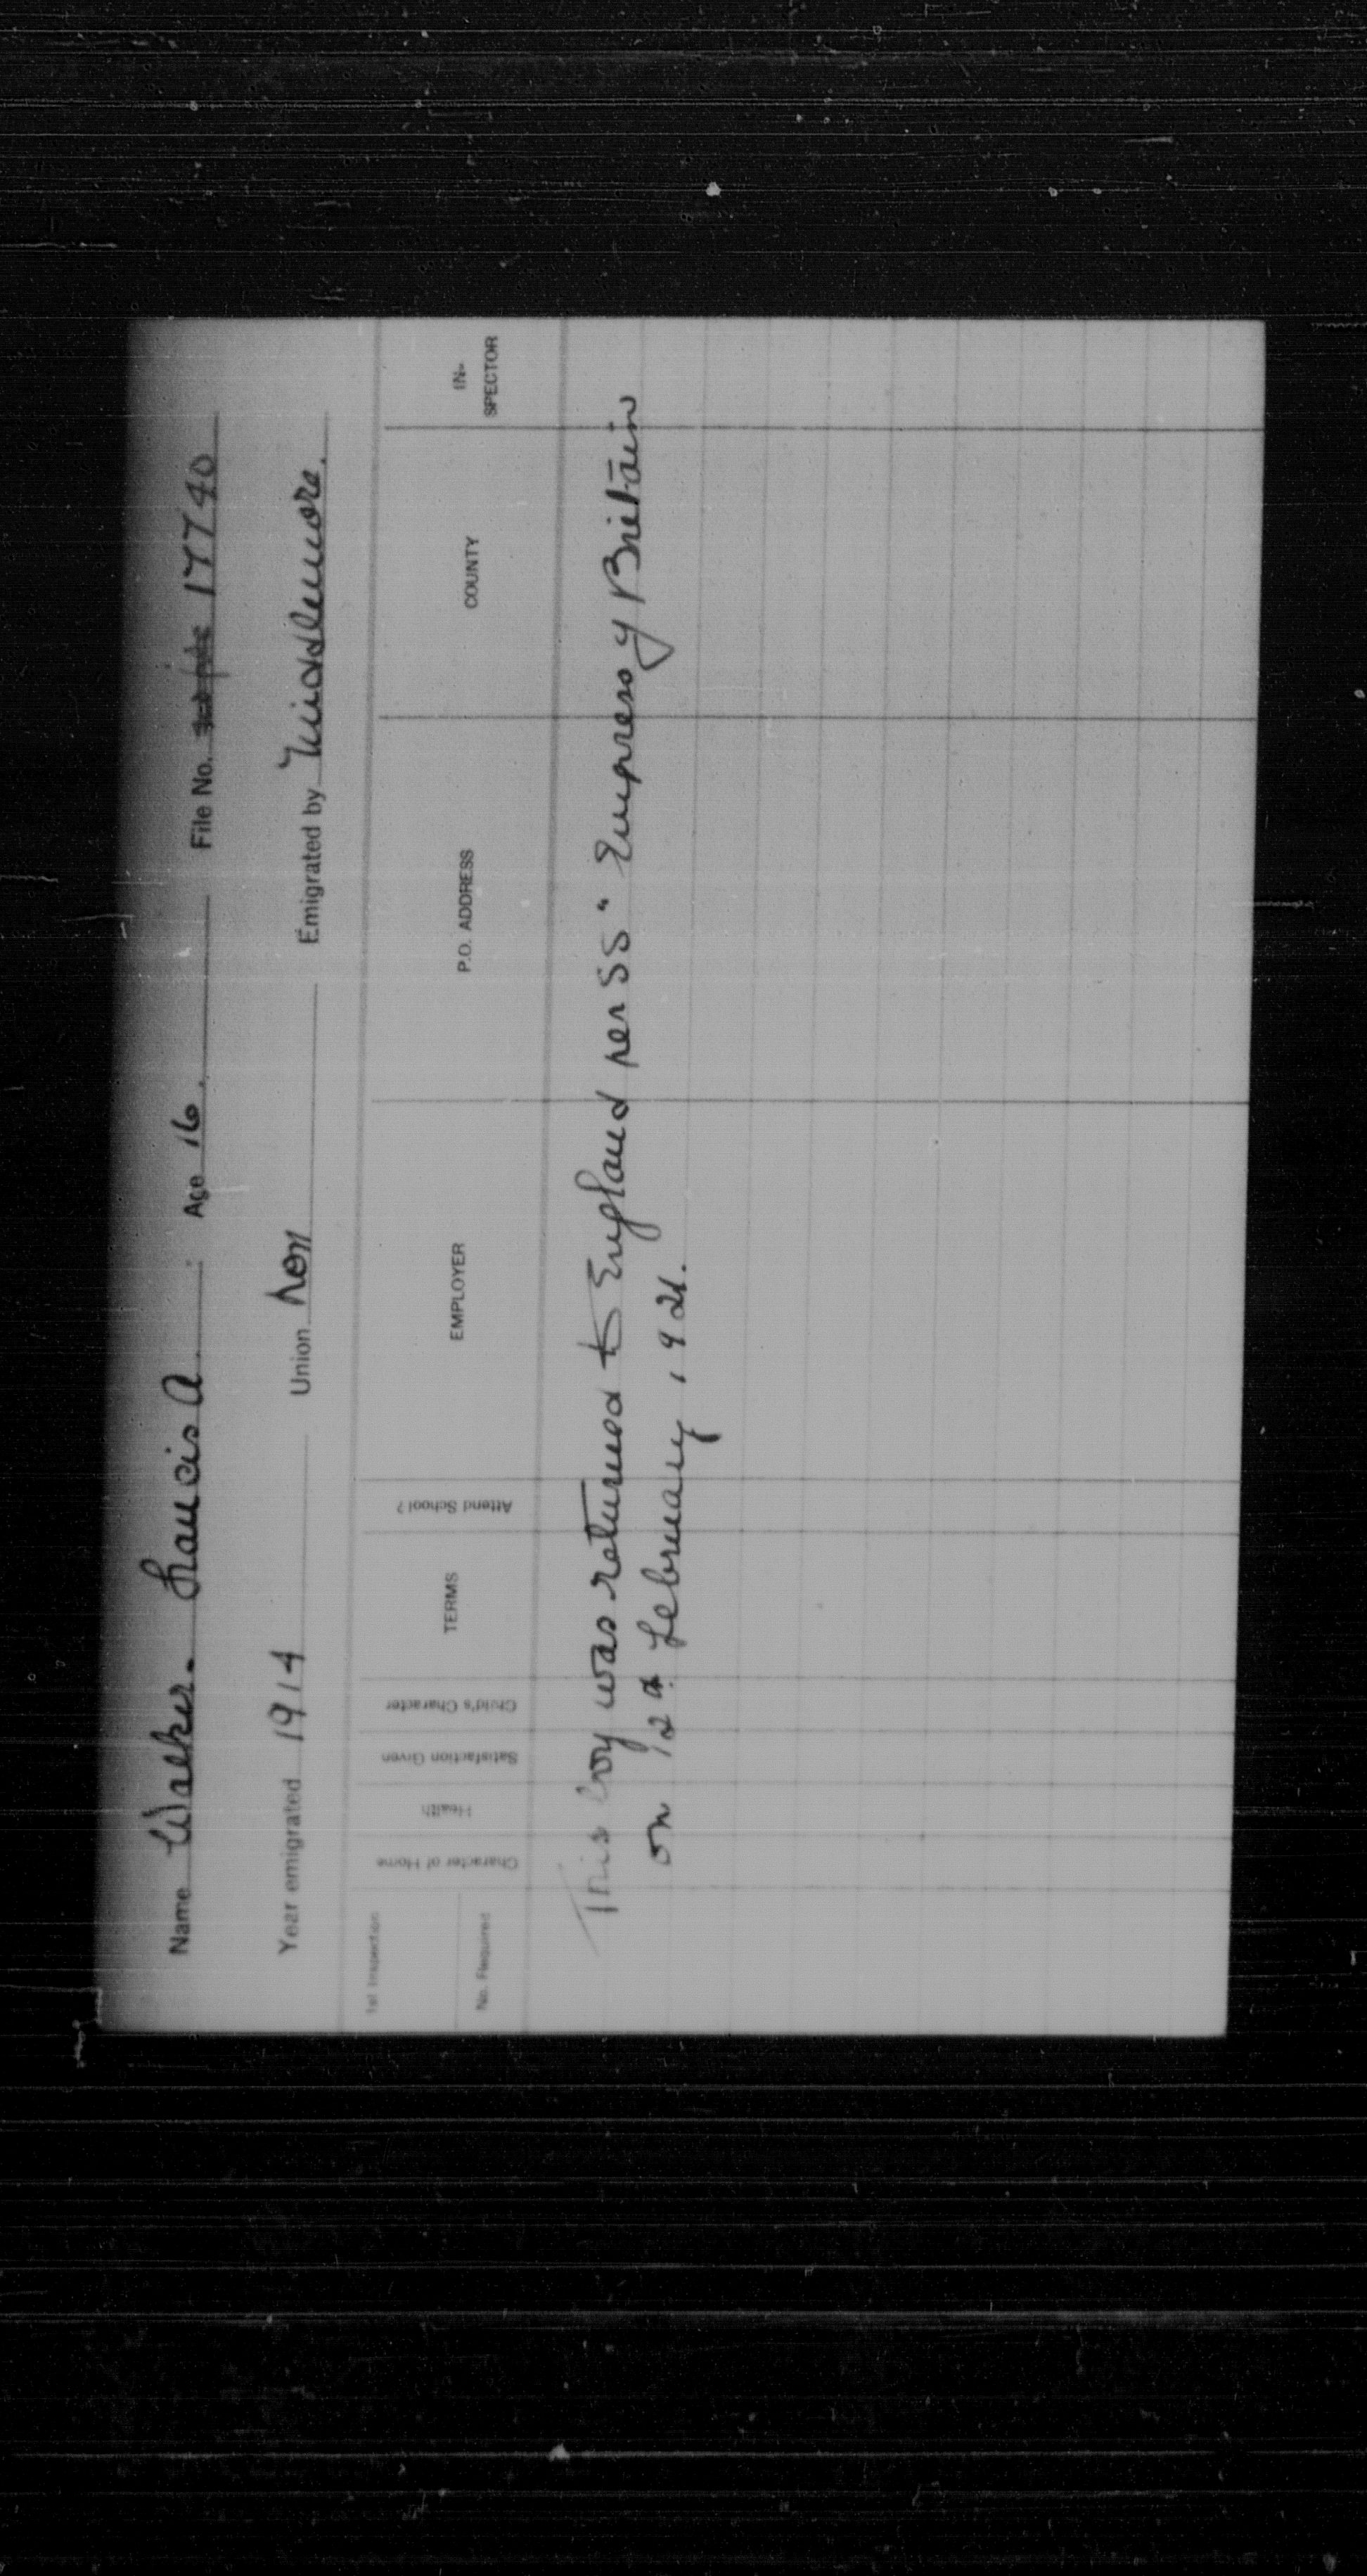 Name Walker. Francis A. Age 16. File No. 17740
Year emigrated 1914 Union non Emigrated by Middlemore.
1st Inspection
No. Required
Character of Home
Health
Satisfaction Given
Child's Character
TERMS
Attend School?
EMPLOYER
P.O. ADDRESS
COUNTY
IN-
SPECTOR
This boy was returned to England per SS "Empress of Britain
on 12 February, 1921.